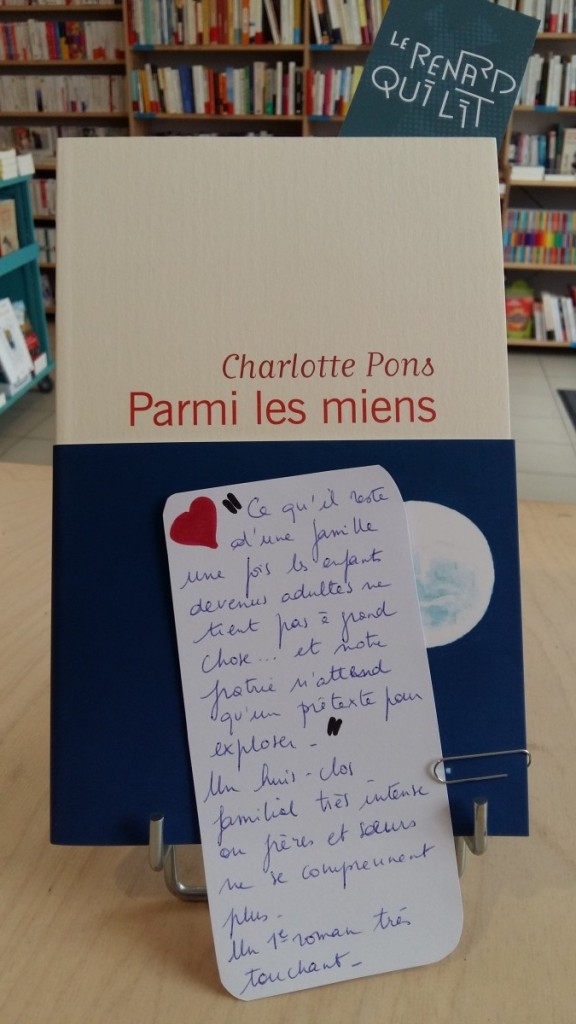 LE RENARD
QUI LIT
Charlotte Pons
Parmi les miens
" Ce qu'il reste
d'une famille
une fois les enfants
devenus adultes ne
tient pas à grand
chose... et notre
fratrie n'attend
qu'un prétexte pour
exploser - "
Un huis-clos
familial très intense
où frères et sœurs
ne se comprennent
plus -
Un 1er roman très
touchant -